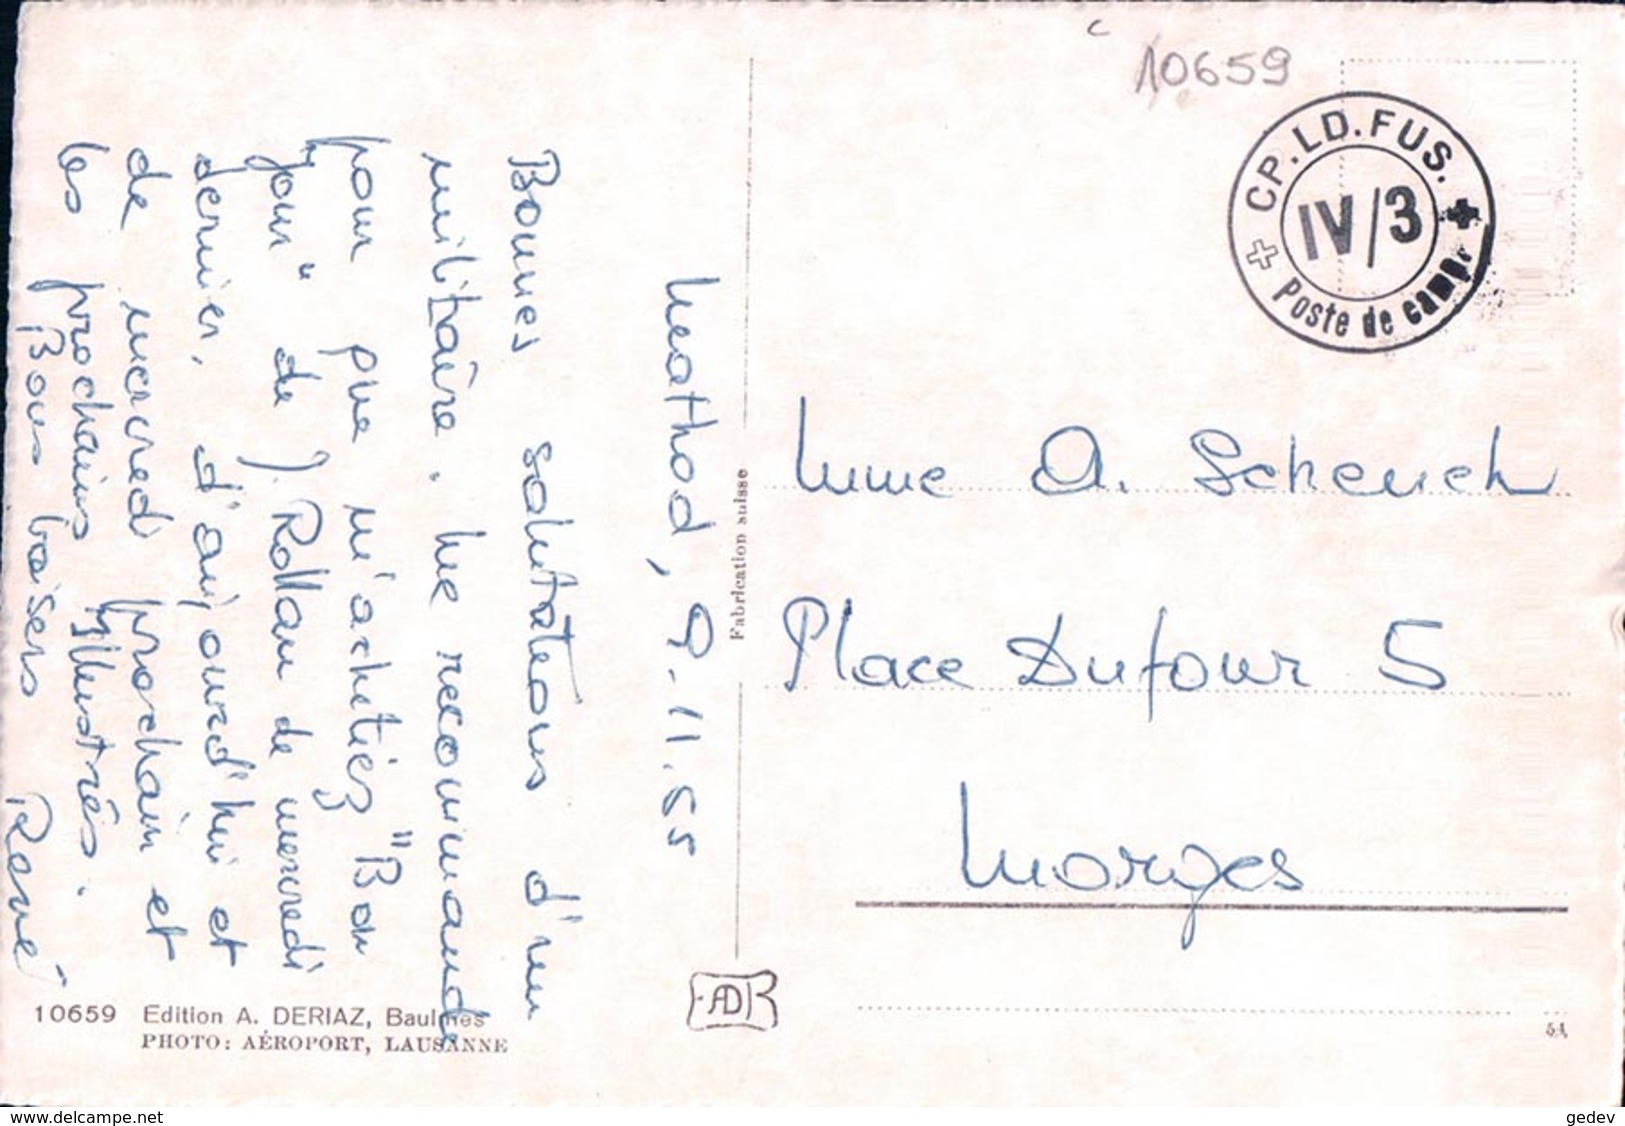 10659
CP. LD. FUS.
IV/3
Poste de camp.
Mathod, 9.11.55
Bonnes salutations d'un
militaire. Me recommande
pour que m'achetiez "Bon
jour" de J. Rollan de mercredi
dernier, d'aujourd'hui et
de mercredi prochain et
les prochains Illustrés.
Bons baisers René
Mme A. Scheuch
Place Dufour 5
Morges
Fabrication suisse
ADB
10659 Edition A. DERIAZ, Baulmes
PHOTO: AÉROPORT, LAUSANNE
54
www.delcampe.net
gedev